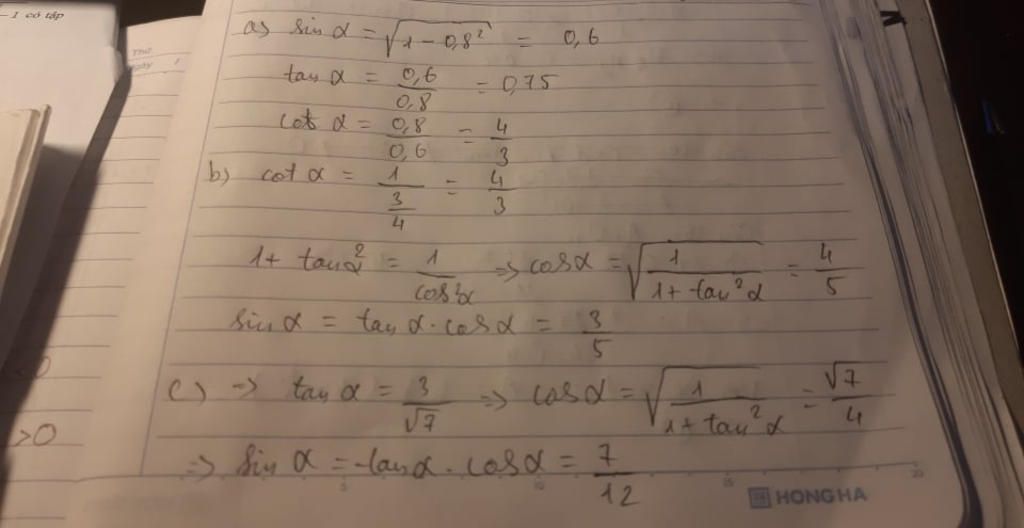 - I có tập
Thứ
Ngày /
a) sin α = √(1 - 0,8²) = 0,6
tan α = 0,6/0,8 = 0,75
cot α = 0,8/0,6 = 4/3
b) cot α = 1/(3/4) = 4/3
1 + tan²α = 1/cos²α => cos α = √(1/(1 + tan²α)) = 4/5
sin α = tan α . cos α = 3/5
c) => tan α = 3/√7 => cos α = √(1/(1 + tan²α)) = √7/4
=> sin α = tan α . cos α = 7/12
>0
5 10 15 20
HONG HA